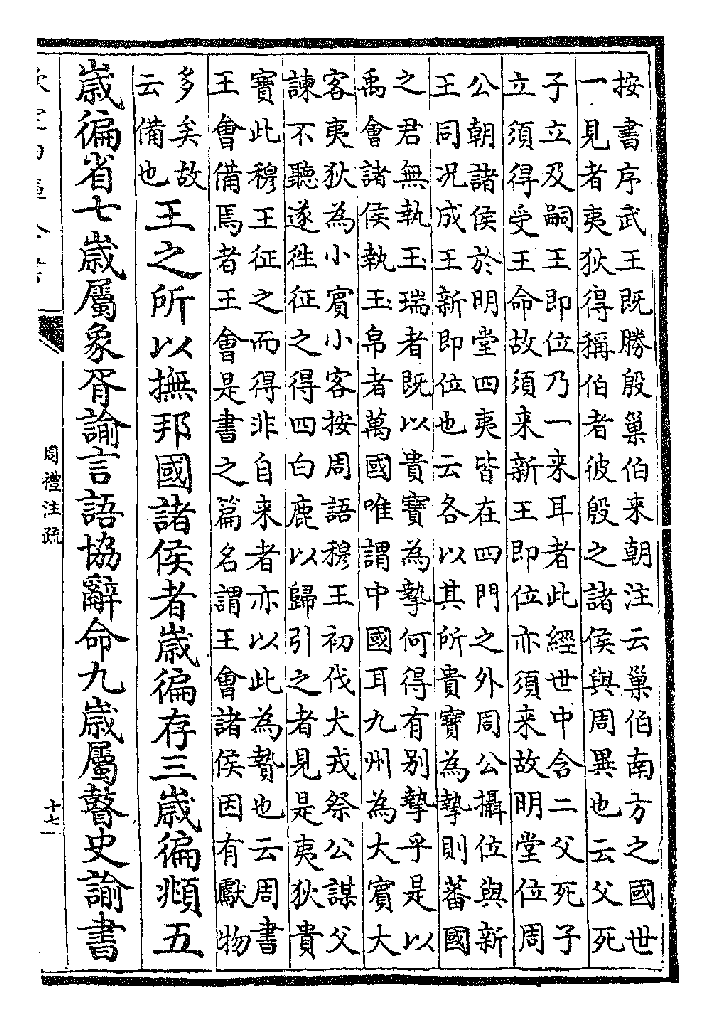 按書序武王既勝殷巢伯来朝注云巢伯南方之國世
一見者夷狄得稱伯者彼殷之諸侯與周異也云父死
子立及嗣王即位乃一来耳者此經世中含二父死子
立須得受王命故須来新王即位亦須来故明堂位周
公朝諸侯於明堂四夷皆在四門之外周公攝位與新
王同况成王新即位也云各以其所貴寶為摯則蕃國
之君無執玉瑞者既以貴寶為摯何得有别摯乎是以
禹會諸侯執玉帛者萬國唯謂中國耳九州為大賓大
客夷狄為小賓小客按周語穆王初伐犬戎祭公謀父
諫不聽遂徃征之得四白鹿以歸引之者見是夷狄貴
寶此穆王征之而得非自来者亦以此為贄也云周書
王會備焉者王會是書之篇名謂王會諸侯因有獻物
多矣故
云備也
王之所以撫邦國諸侯者歲徧存三歲徧頫五
歲徧省七歲屬象胥諭言語協辭命九歲屬瞽史諭書
周禮注疏
十七